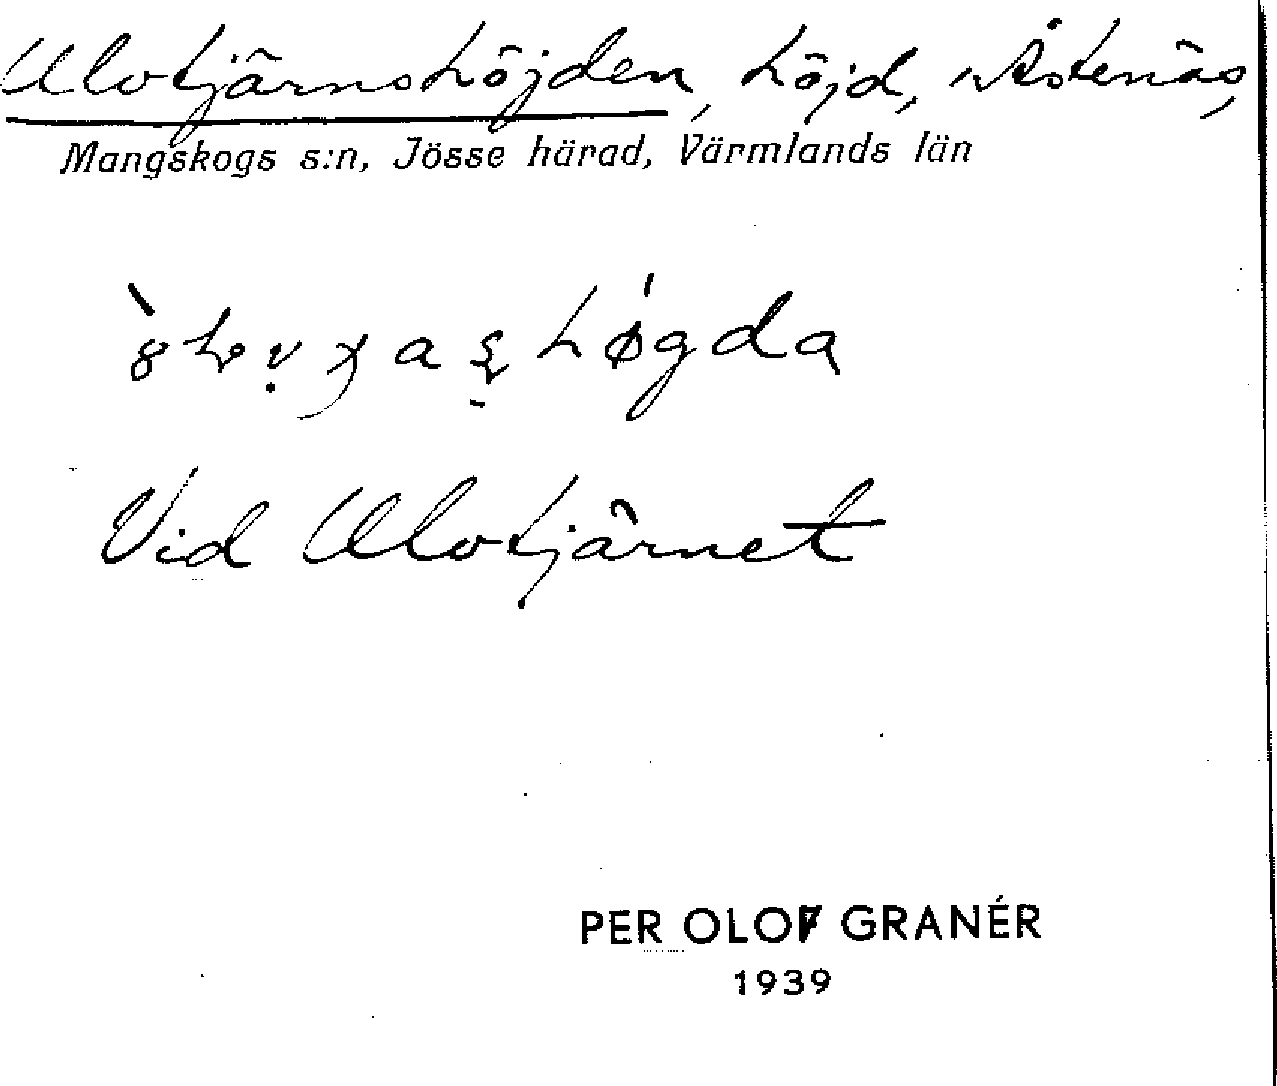 Ulvtjärnshöjden, höjd, Åstenäs,
Mangskogs s:n, Jösse härad, Värmlands län
Vid Ulvtjärnet
PER OLOF GRANÉR
1939